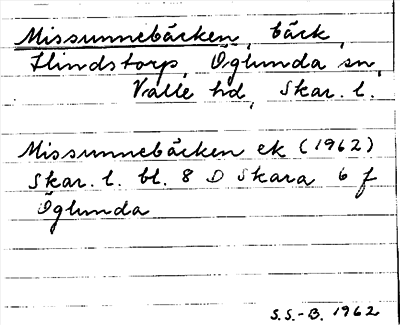 Missunnebäcken, bäck,
Flindstorp, Öglunda sn,
Valle hd, Skar. l.
Missunnebäcken ek (1962)
Skar. l. bl. 8 D Skara 6 f
Öglunda
S.S.-B. 1962